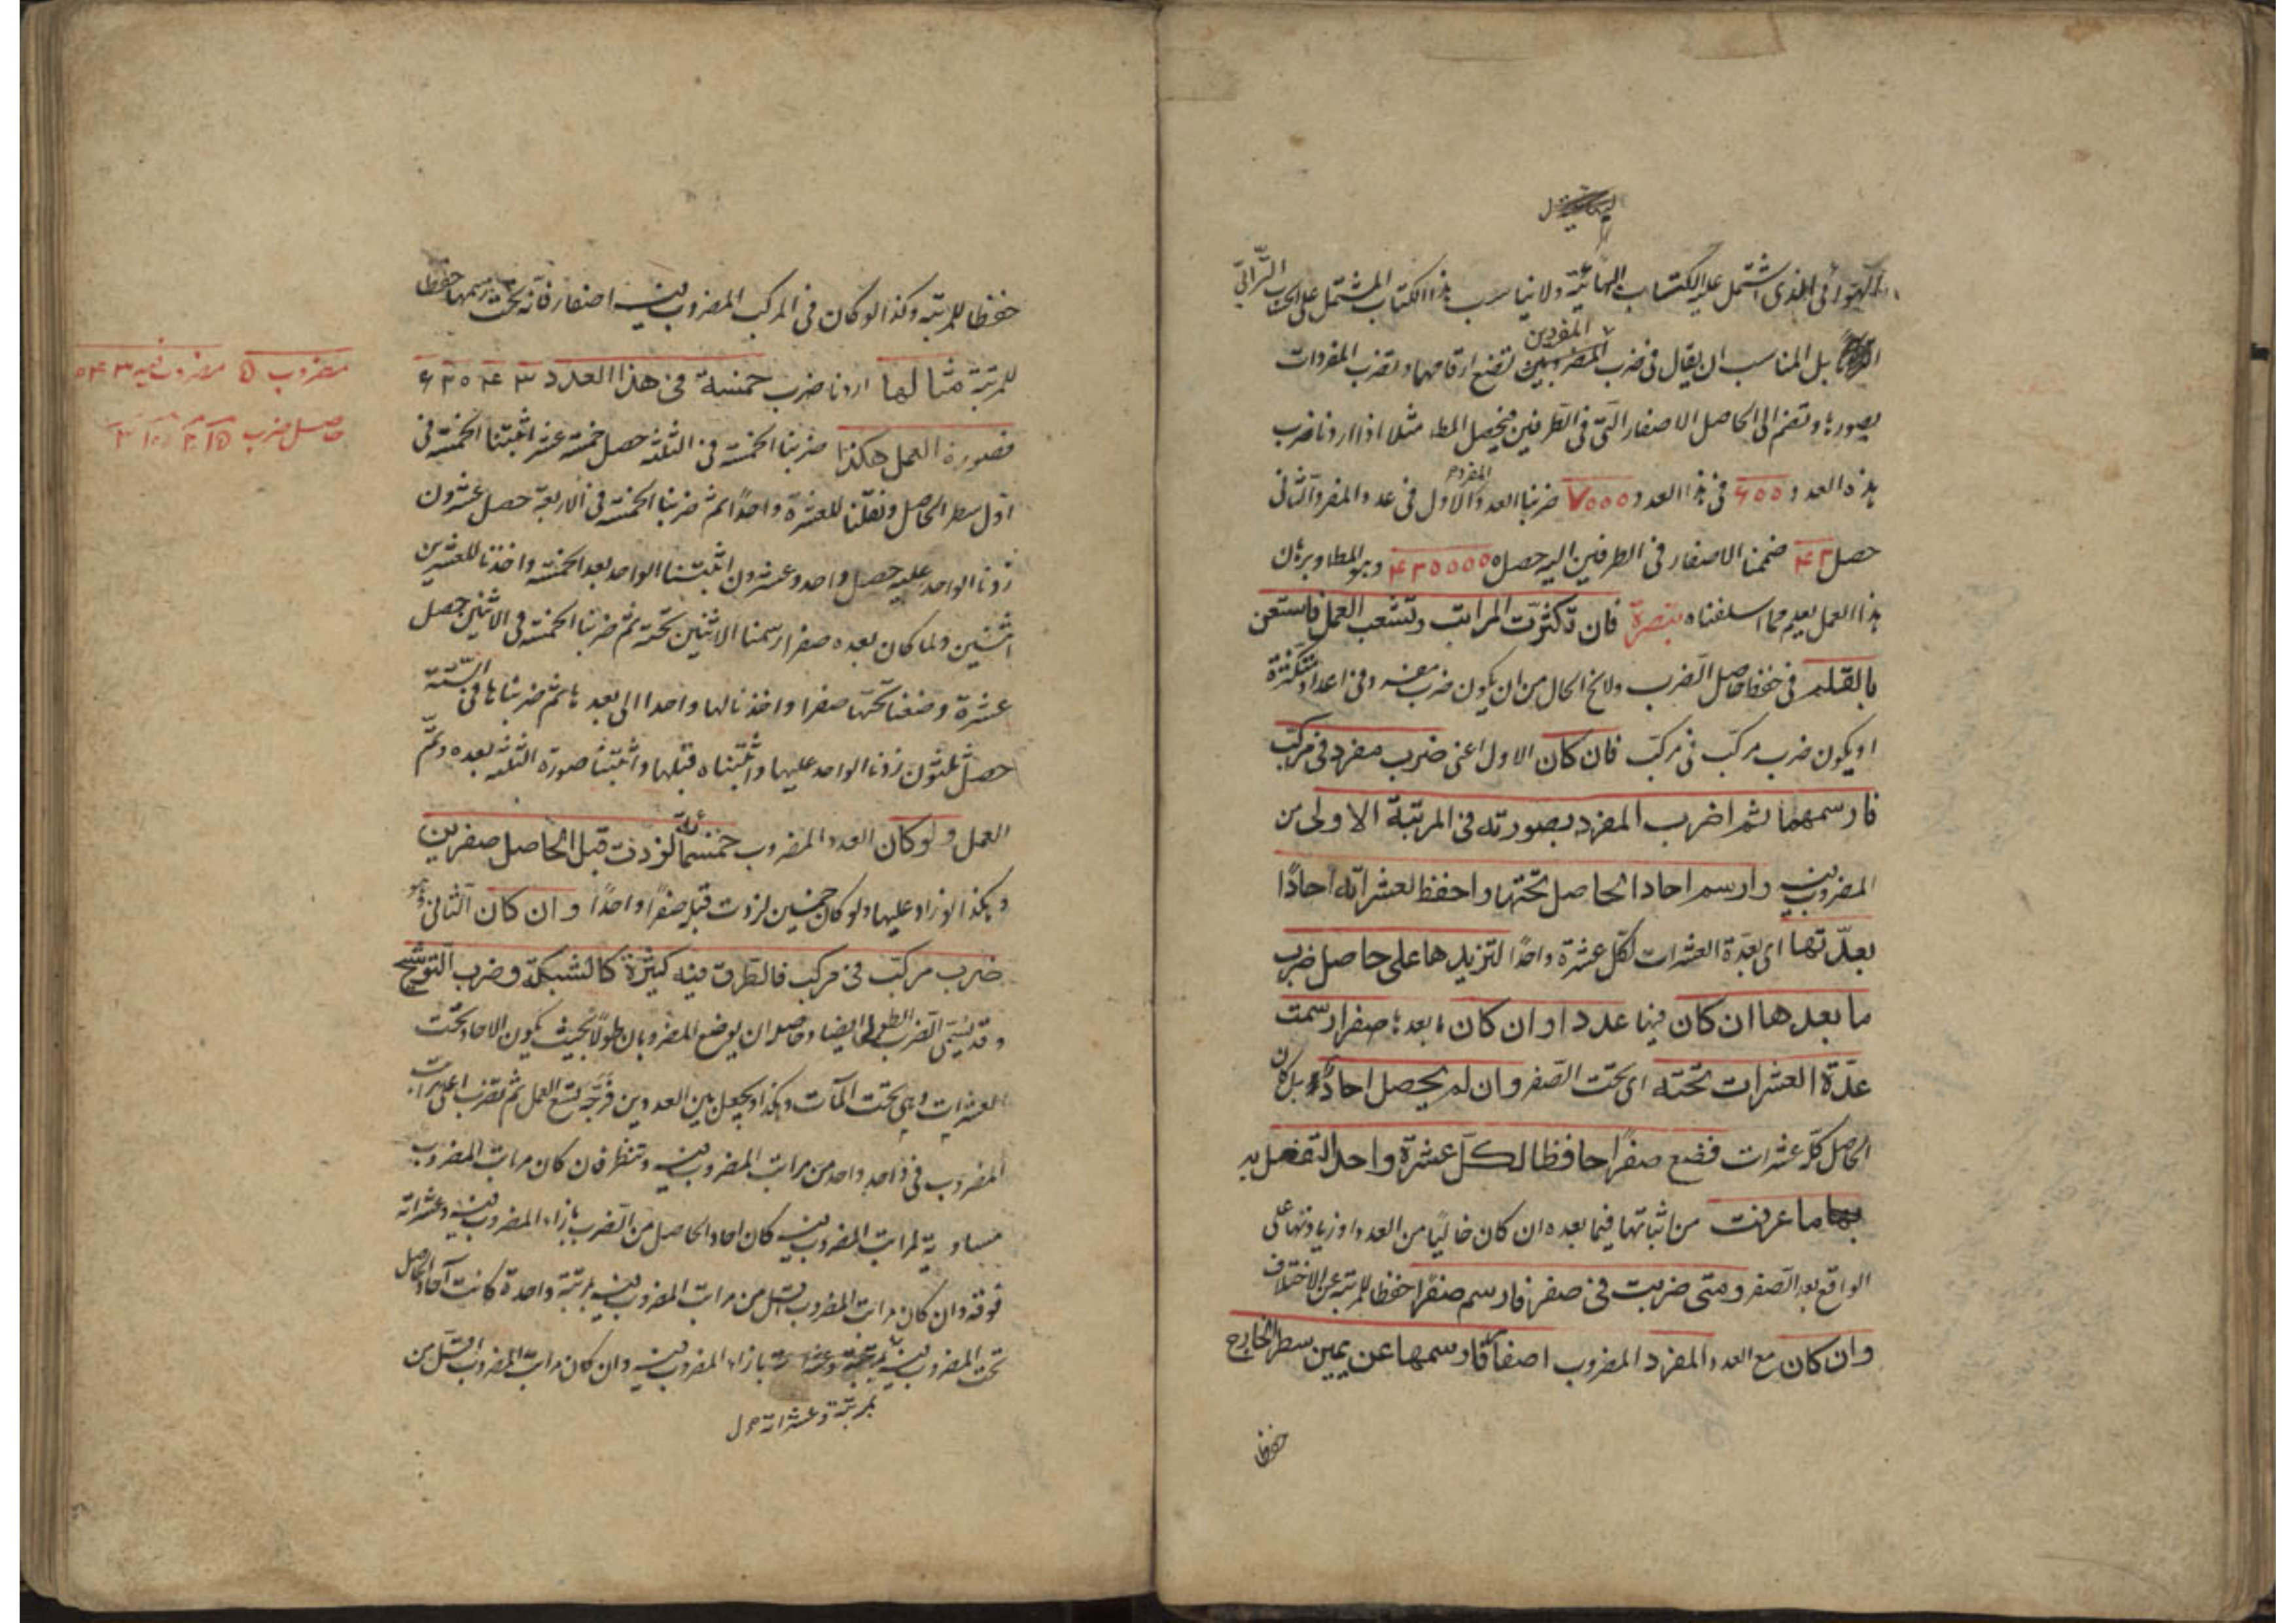 الهوائي الذي اشتمل عليه الكتاب الهوائية ولا يناسب هذا الكتاب المشتمل على الحساب الترابي
بل المناسب ان يقال في ضرب المفردين تضع ارقامهما وتضرب المفردات
بصورها وتضم الى الحاصل الاصفار التي في الطرفين فيحصل المط مثلا اذا اردنا ضرب
هذه العدد ۶۰۰ في هذا العدد ۷۰۰۰ ضربنا العدد المفرد الاول في عدد المفرد الثاني
حصل ۴۲ ضممنا الاصفار في الطرفين اليه حصل ۴۲۰۰۰۰۰ وهو المط وبرهان
هذا العمل يعلم مما اسلفناه تبصرة فان تكثرت المراتب وتشعب العمل فاستعن
بالقلم في حفظ حاصل الضرب ولا يخ الحال من ان يكون ضرب مفرد في اعداد متكثرة
او يكون ضرب مركب في مركب فان كان الاول اعنى ضرب مفرد في مركب
فارسمهما ثم اضرب المفرد بصورته في المرتبة الاولى من
المضروب فيه وارسم احاد الحاصل تحتها واحفظ لعشراته احادًا
بعدتها اى بعدة العشرات لكل عشرة واحدًا لتزيدها على حاصل ضرب
ما بعدها ان كان فيها عدد او ان كان ما بعدها صفرا رسمت
عدة العشرات تحته اى تحت الصفر وان لم يحصل احاد بل كان
الحاصل كله عشرات فضع صفرًا حافظا لكل عشرة واحدا لتفعل به
ما عرفت من اثباتها فيما بعده ان كان خاليًا من العدد او زيادتها على
الواقع بعد الصفر ومتى ضربت في صفر فارسم صفرًا حفظا للمرتبة عن الاختلاف
وان كان مع العدد المفرد المضروب اصفار فارسمها عن يمين سطر الخارج
حفظا
حفظا للمرتبة وكذا لو كان في المركب المضروب فيه اصفار فانه تحت رسمها حفظا
للمرتبة مثالها اردنا ضرب خمسة في هذا العدد ۶۲۰۴۳
فصورة العمل هكذا ضربنا الخمسة في الثلثة حصل خمسة عشر اثبتنا الخمسة في
اول سطر الحاصل ونقلنا للعشرة واحدًا ثم ضربنا الخمسة في الاربعة حصل عشرون
زدنا الواحد عليه حصل واحد وعشرون اثبتنا الواحد بعد الخمسة واخذنا للعشرين
اثنين ولما كان بعده صفرا رسمنا الاثنين تحته ثم ضربنا الخمسة في الاثنين حصل
عشرة وضعنا تحتها صفرا واخذنا لها واحدا الى بعدها ثم ضربناها في الستة
حصل ثلثون زدنا الواحد عليها واثبتناه قبلها واثبتنا صورة الثلثة بعده وتم
العمل ولو كان العدد المضروب خمسمائة لزدت قبل الحاصل صفرين
وهكذا لو زاد عليها ولو كان خمسين لزدت قبل صفرًا واحدًا وان كان الثاني وهو
ضرب مركب في مركب فالطرق فيه كثيرة كالشبكة وضرب التوشيح
وقد يسمى الضرب الطولى ايضا وحاصله ان يوضع المضروبان طولًا بحيث يكون الاحاد تحت
العشرات وهي تحت المآت وهكذا ويجعل بين العددين فرجة تسع العمل ثم تضرب اعلى مراتب
المضروب في واحد واحد من مراتب المضروب فيه وتنظر فان كان مراتب المضروب
مساوية لمراتب المضروب فيه كان احاد الحاصل من الضرب بازاء المضروب فيه وعشراته
فوقه وان كان مراتب المضروب اقل من مراتب المضروب فيه بمرتبة واحدة كانت آحاد الحاصل
تحت المضروب فيه بمرتبة وعشراته بازاء المضروب فيه وان كان مراتب المضروب اقل من
بمرتبة وعشراته
مضروب ۵ مضروب فيه
حاصل ضرب